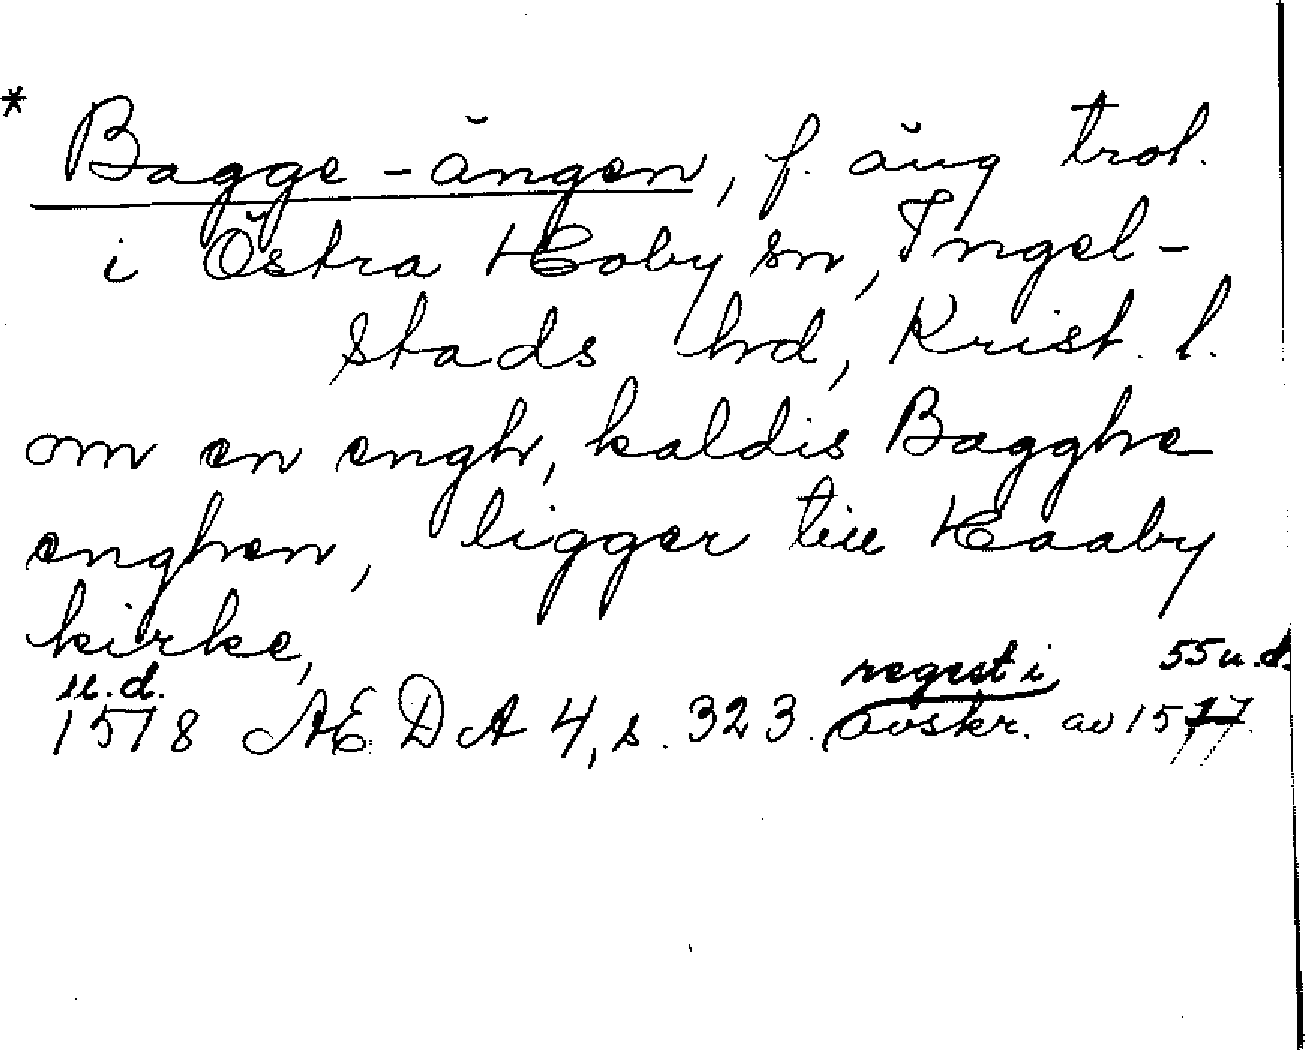 * Bagge-ängen, f. äng trol.
i Östra Hoby sn, Ingel-
stads hd, Krist. l.
om en engh, kaldis Bagghe
enghen, ligger till Haaby
kirke,
u.d. regest i 55 u.d.
1578 AEDA 4, s. 323. avskr. av 1577